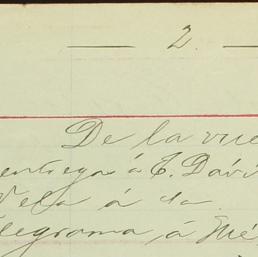 2.
De la vue
entrega á C. Dávi
Vela á la
legrama á Mé